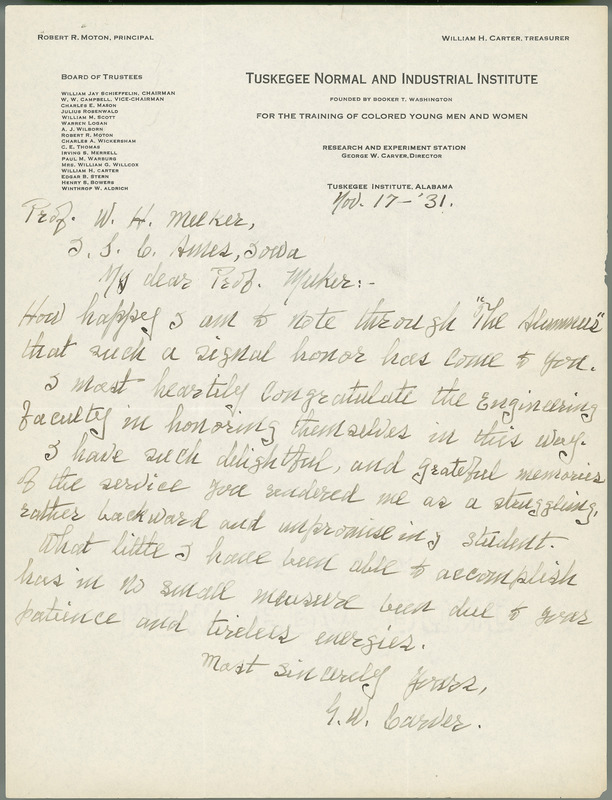 ROBERT R. MOTON, PRINCIPAL
WILLIAM H. CARTER, TREASURER
BOARD OF TRUSTEES
WILLIAM JAY SCHIEFFELIN, CHAIRMAN
W. W. CAMPBELL, VICE-CHAIRMAN
CHARLES E. MASON
JULIUS ROSENWALD
WILLIAM M. SCOTT
WARREN LOGAN
A. J. WILBORN
ROBERT R. MOTON
CHARLES A. WICKERSHAM
C. E. THOMAS
IRVING S. MERRELL
PAUL M. WARBURG
MRS. WILLIAM G. WILLCOX
WILLIAM H. CARTER
EDGAR B. STERN
HENRY B. BOWERS
WINTHROP W. ALDRICH
TUSKEGEE NORMAL AND INDUSTRIAL INSTITUTE
FOUNDED BY BOOKER T. WASHINGTON
FOR THE TRAINING OF COLORED YOUNG MEN AND WOMEN
RESEARCH AND EXPERIMENT STATION
GEORGE W. CARVER, DIRECTOR
TUSKEGEE INSTITUTE, ALABAMA
Nov. 17-'31.
Prof. W. H. Meeker,
I. S. C. Ames, Iowa
My dear Prof. Meeker:-
How happy I am to note through "The Alumnus"
that such a signal honor has come to you.
I most heartily congratulate the Engineering
faculty in honoring themselves in this way.
I have such delightful, and grateful memories
of the service you rendered me as a struggling,
rather backward and unpromiseing student.
What little I have been able to accomplish
has in no small measure been due to your
patience and tireless energies.
Most sincerely yours,
G. W. Carver.